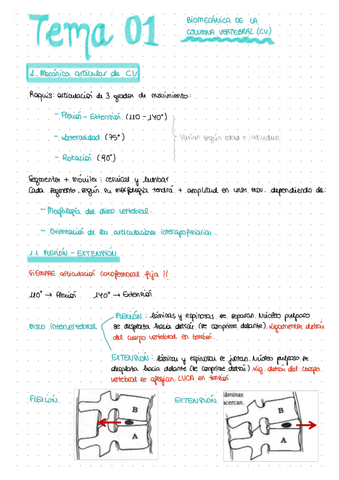 Tema 01
BIOMECÁNICA DE LA
COLUMNA VERTEBRAL (CV)
1. Mecánica articular de CV
Raquis: articulación de 3 grados de movimiento:
- Flexión - Extensión (110 - 140°)
- Lateralidad (75°)
- Rotación (90°)
Varían según edad e individuo
Segmentos + móviles: cervical y lumbar
Cada segmento, según su morfología tendrá + amplitud en un mov. dependiendo de:
- Morfología del disco vertebral
- Orientación de las articulaciones interapofisarias
1.1 FLEXIÓN - EXTENSIÓN
SIEMPRE articulación coxofemoral fija !!
110° → Flexión 140° → Extensión
Disco intervertebral
FLEXIÓN: láminas y espinosas se separan. Núcleo pulposo
se desplaza hacia detrás (se comprime delante). Ligamentos detrás
del cuerpo vertebral en tensión
EXTENSIÓN: láminas y espinosas se juntan. Núcleo pulposo se
desplaza hacia delante (se comprime detrás). Lig. detrás del cuerpo
vertebral se aflojan. LVCA en tensión
FLEXIÓN
B
A
EXTENSIÓN
láminas
acercan.
B
A